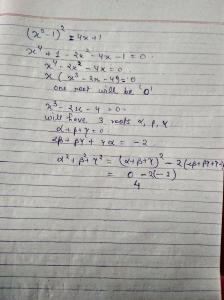 (x² - 1)² = 4x + 1
x⁴ + 1 - 2x² - 4x - 1 = 0
x⁴ - 2x² - 4x = 0
x (x³ - 2x - 4) = 0
one root will be '0'
x³ - 2x - 4 = 0
will have 3 roots α, β, γ
α + β + γ = 0
αβ + βγ + γα = -2
α² + β² + γ² = (α + β + γ)² - 2(αβ + βγ + γα)
= 0 - 2(-2)
4